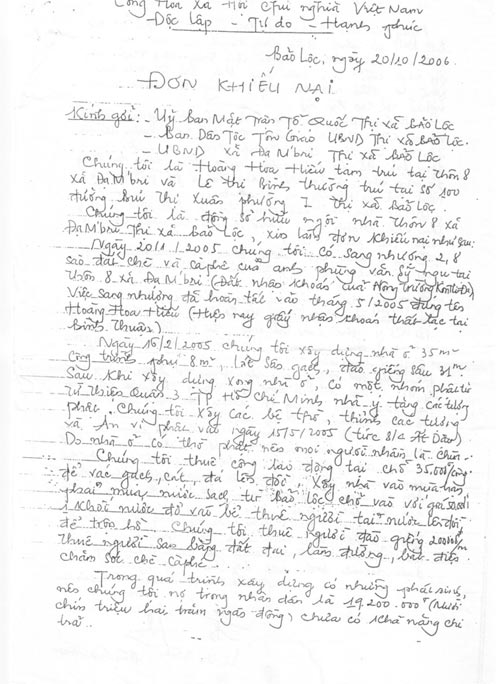 Cộng Hòa Xã Hội Chủ nghĩa Việt Nam
Độc lập - Tự do - Hạnh phúc
Bảo Lộc, ngày 20/10/2006.
ĐƠN KHIẾU NẠI
Kính gởi: - Uỷ ban Mặt Trận Tổ Quốc Thị xã BẢO LỘC
- Ban Dân Tộc Tôn Giáo UBND Thị xã BẢO LỘC.
- UBND xã Đạ M'bri Thị xã BẢO LỘC
Chúng tôi là Hoàng Hoa Hiếu tạm trú tại thôn 8
xã Đạ M'bri và Lê thị Bình thường trú tại số 100
đường Bùi Thị Xuân phường I thị xã Bảo Lộc.
Chúng tôi là đồng sở hữu ngôi nhà thôn 8 xã
Đạ M'bri Thị xã Bảo Lộc, xin làm đơn khiếu nại như sau:
Ngày 20/1/2005 chúng tôi có sang nhượng 2,8
sào đất chè và cà phê của anh phùng văn Sỹ ngụ tại
thôn 8 xã Đạ M'bri (Đất nhận khoán của Nông trường
Việc sang nhượng đã hoàn tất vào tháng 5/2005 đứng tên
Hoàng Hoa Hiếu (Hiện nay giấy nhận khoán thất lạc tại
Bình Thuận)
Ngày 16/2/2005 chúng tôi xây dựng nhà ở 35m²
công trình phụ 8m², lát sân gạch, đào giếng sâu 31m
Sau khi xây dựng xong nhà ở, có một nhóm phật tử
từ thiện Quận 3 TP Hồ Chí Minh nhã ý tặng các tượng
phật. Chúng tôi xây các bệ thờ, thỉnh các tượng
và An vị phật vào ngày 15/5/2005 (tức 8/4 Ất Dậu)
Do nhà ở có thờ phật nên mọi người nhầm là chùa.
Chúng tôi thuê công lao động tại chỗ 35.000/công
để vác gạch, cát, đá lên đồi, xây nhà vào mùa
phải mua nước sạch từ Bảo Lộc chở vào với giá
1 khối nước đổ vào bể thuê người tải nước lên đồi
để trộn hồ. Chúng tôi thuê người đào giếng 200000/m
thuê người san bằng đất đai, làm đường, bắt điện
chăm sóc chè cà phê.
Trong quá trình xây dựng có những phát sinh,
nên chúng tôi nợ trong nhân dân là 19.200.000đ (Mười
chín triệu hai trăm ngàn đồng) chưa có khả năng chi
trả..